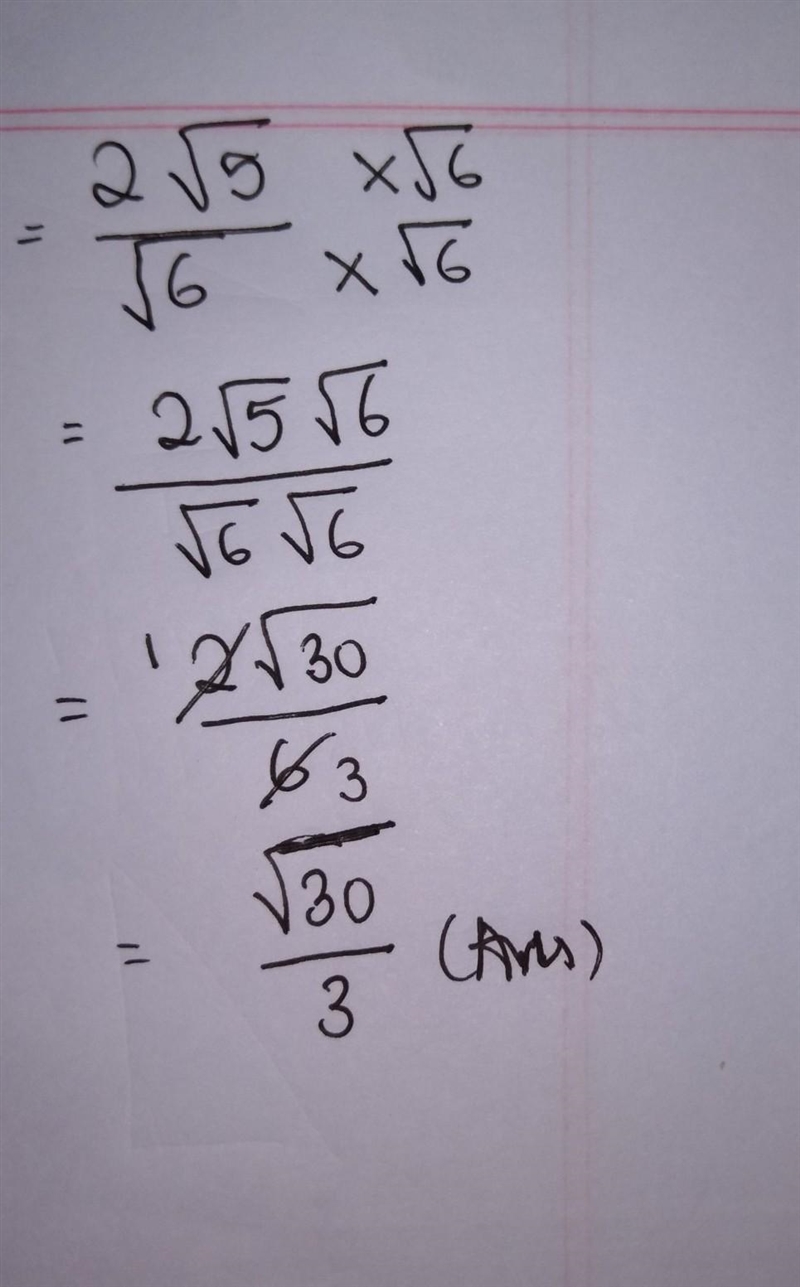 = 2√5 ×√6
√6 ×√6
= 2√5 √6
√6 √6
= 1 2√30
6 3
= √30
3 (Ans)